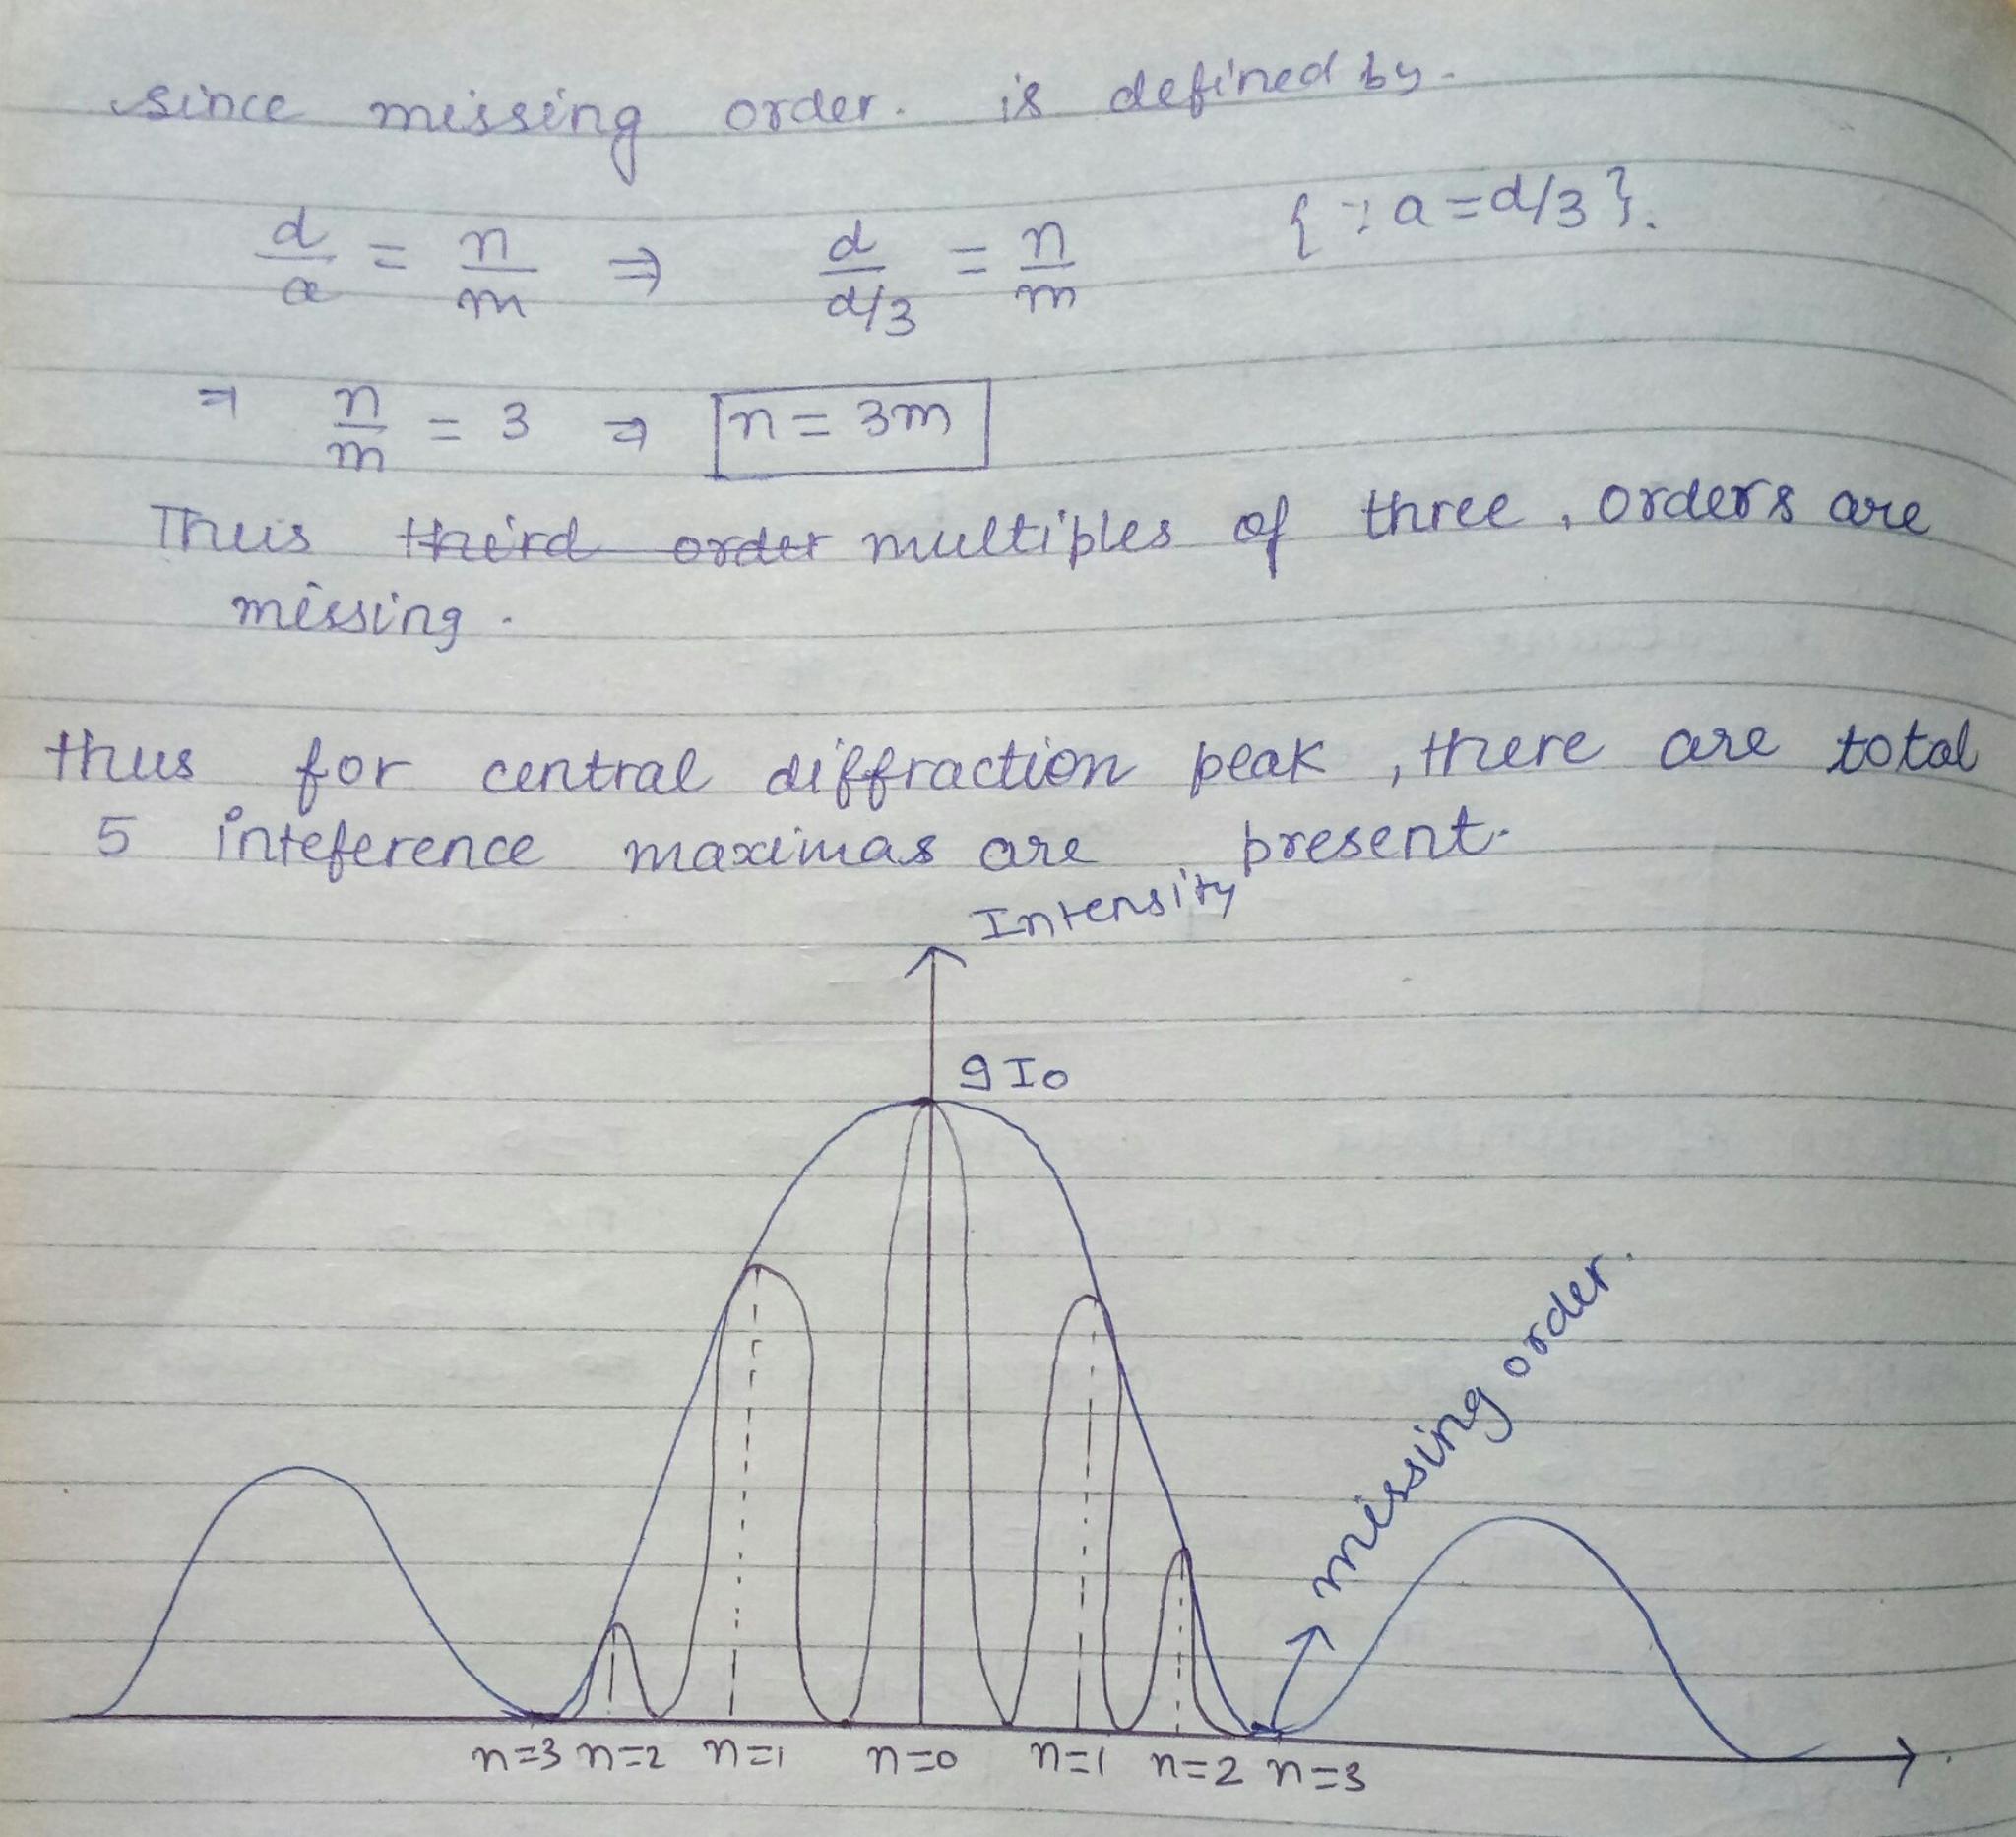 since missing order. is defined by.
d/a = n/m ⇒ d/(d/3) = n/m {∵ a = d/3}.
⇒ n/m = 3 ⇒ n = 3m
Thus third order multiples of three, orders are
missing.
thus for central diffraction peak, there are total
5 inteference maximas are present.
Intensity
9I0
missing order.
n=3 n=2 n=1 n=0 n=1 n=2 n=3